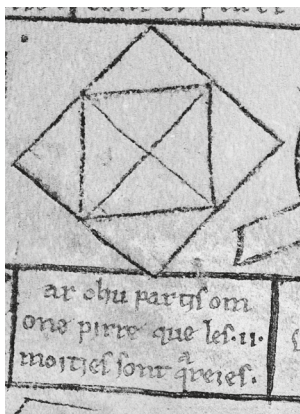 ar chu partis om
one pirre que les .ii.
moities sont qᵃreies.